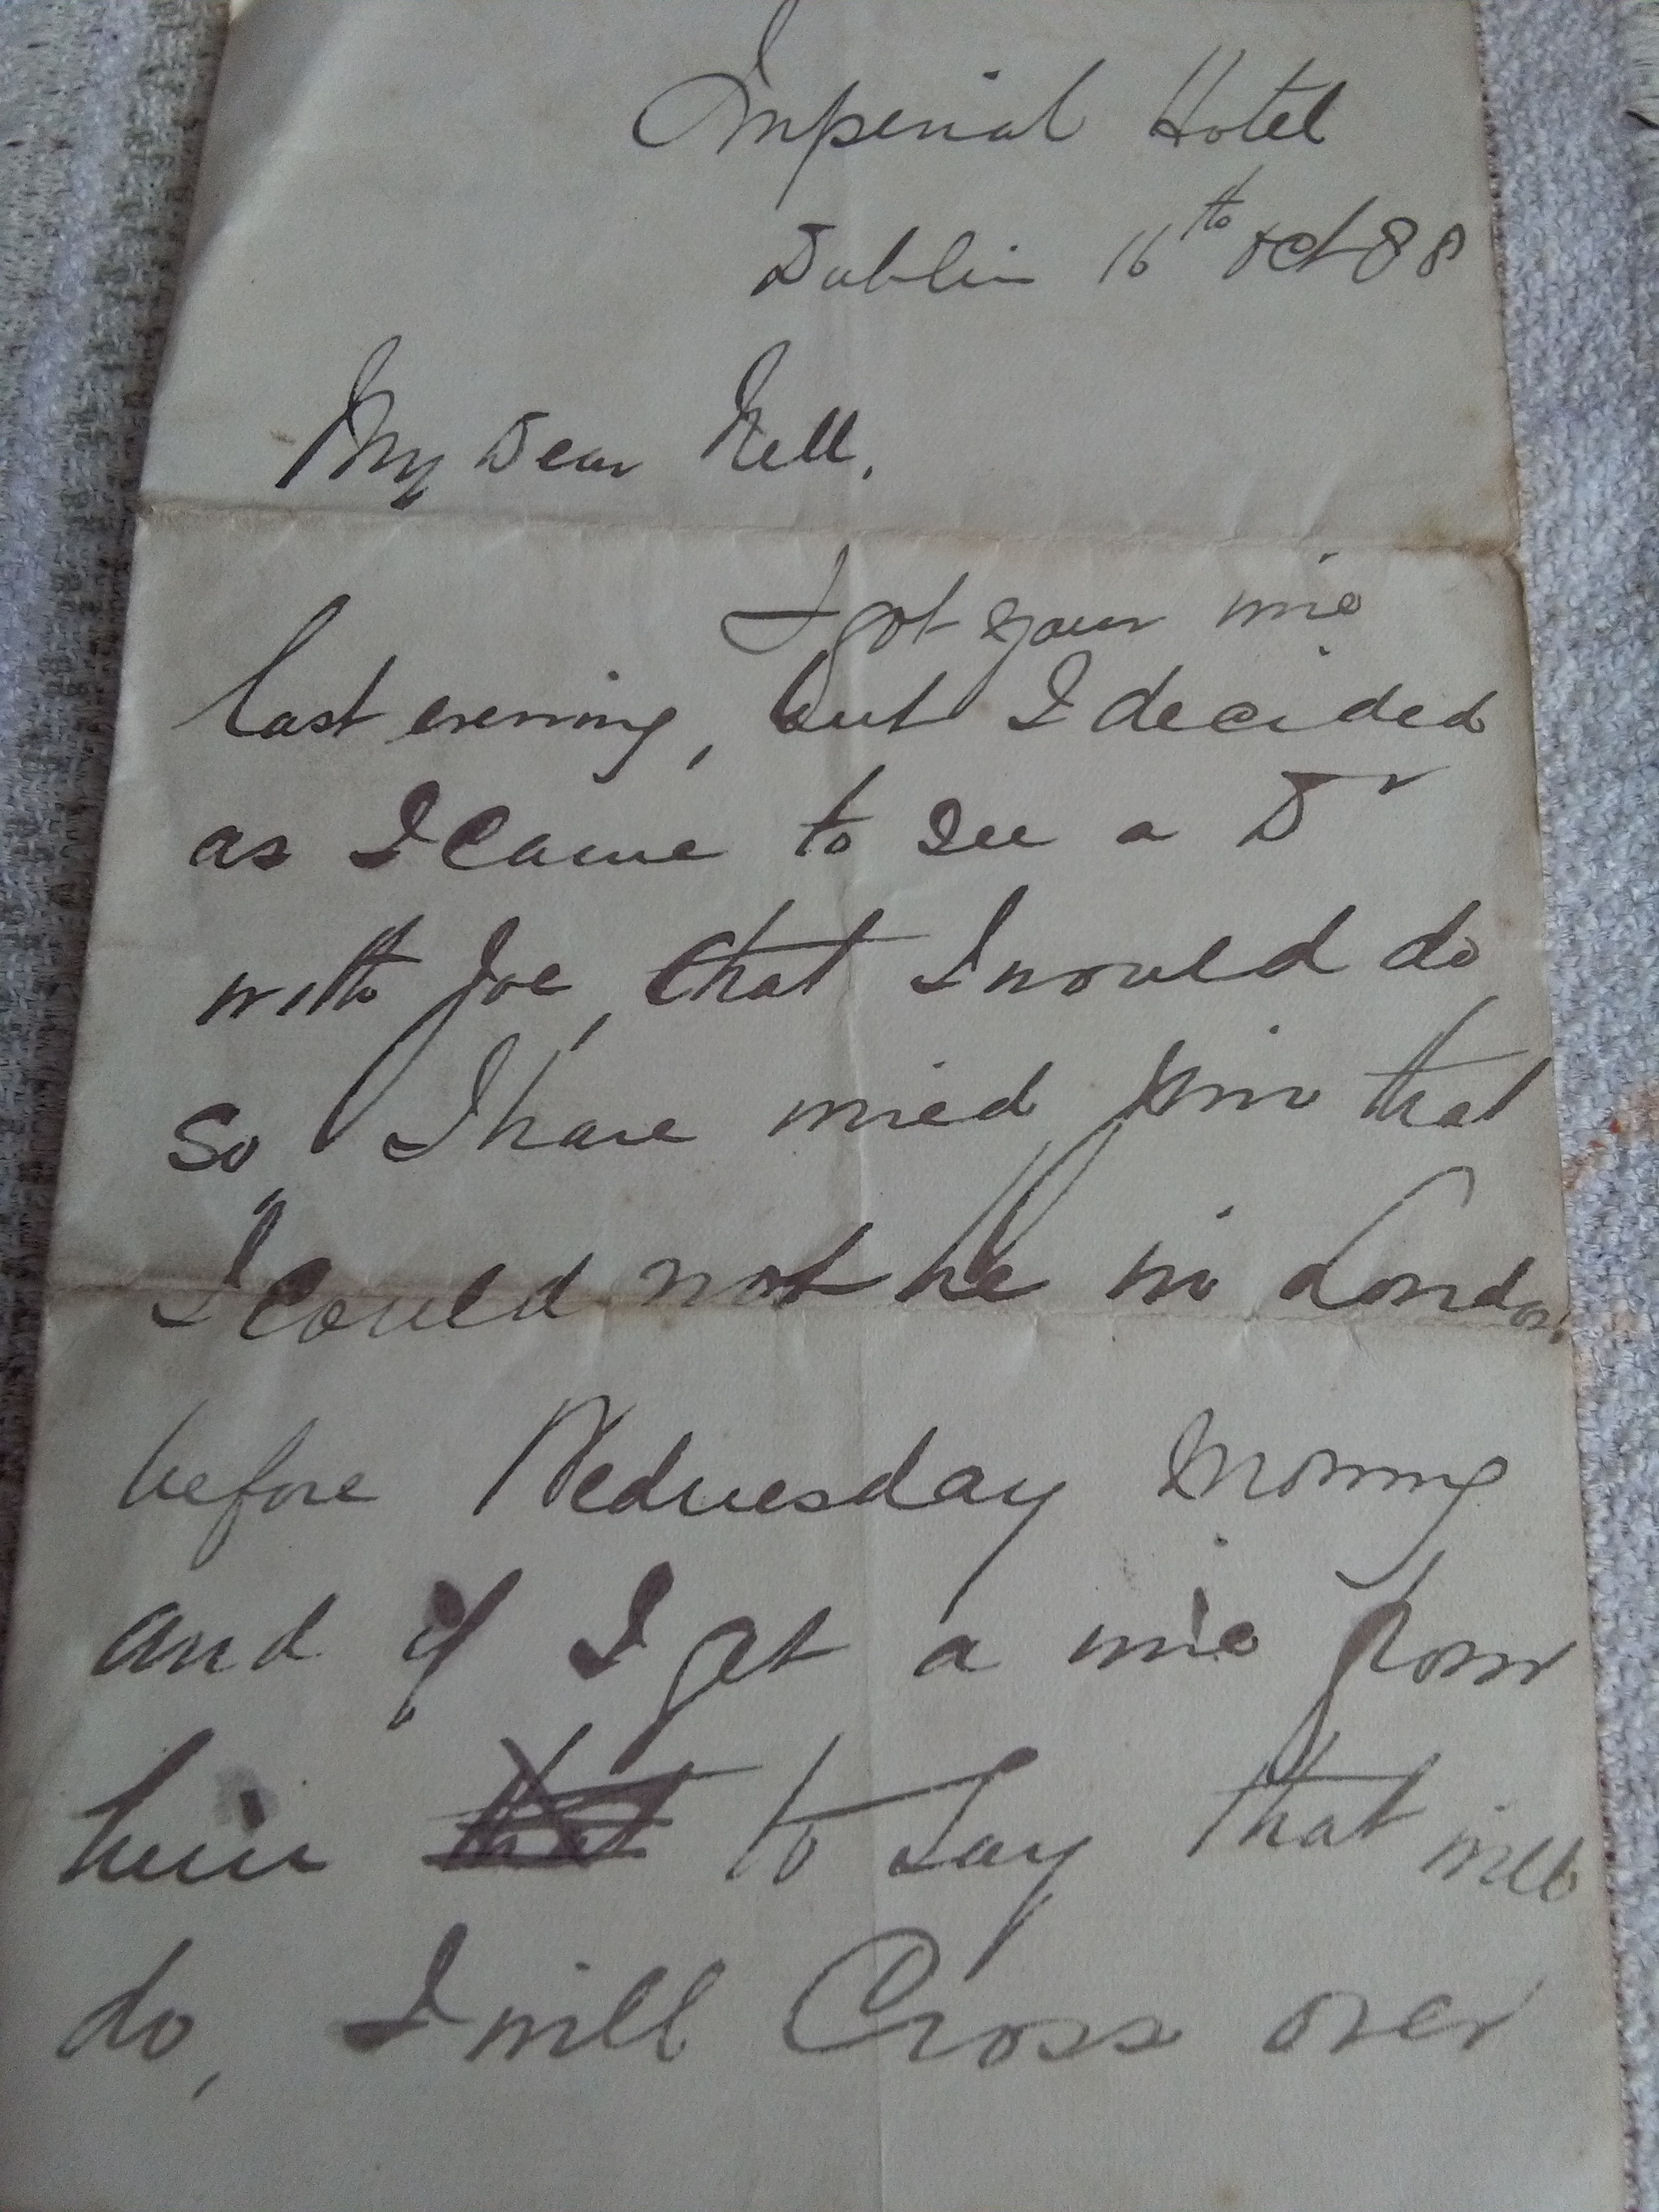 Imperial Hotel
Dublin 16th Oct 88
My Dear Nell,
I got your wire
last evening, but I decided
as I came to see a Dr
with Joe, that I would do
so, I have wired him that
I could not be in London
before Wednesday morning
and if I get a wire from
him that to say that will
do, I will Cross over